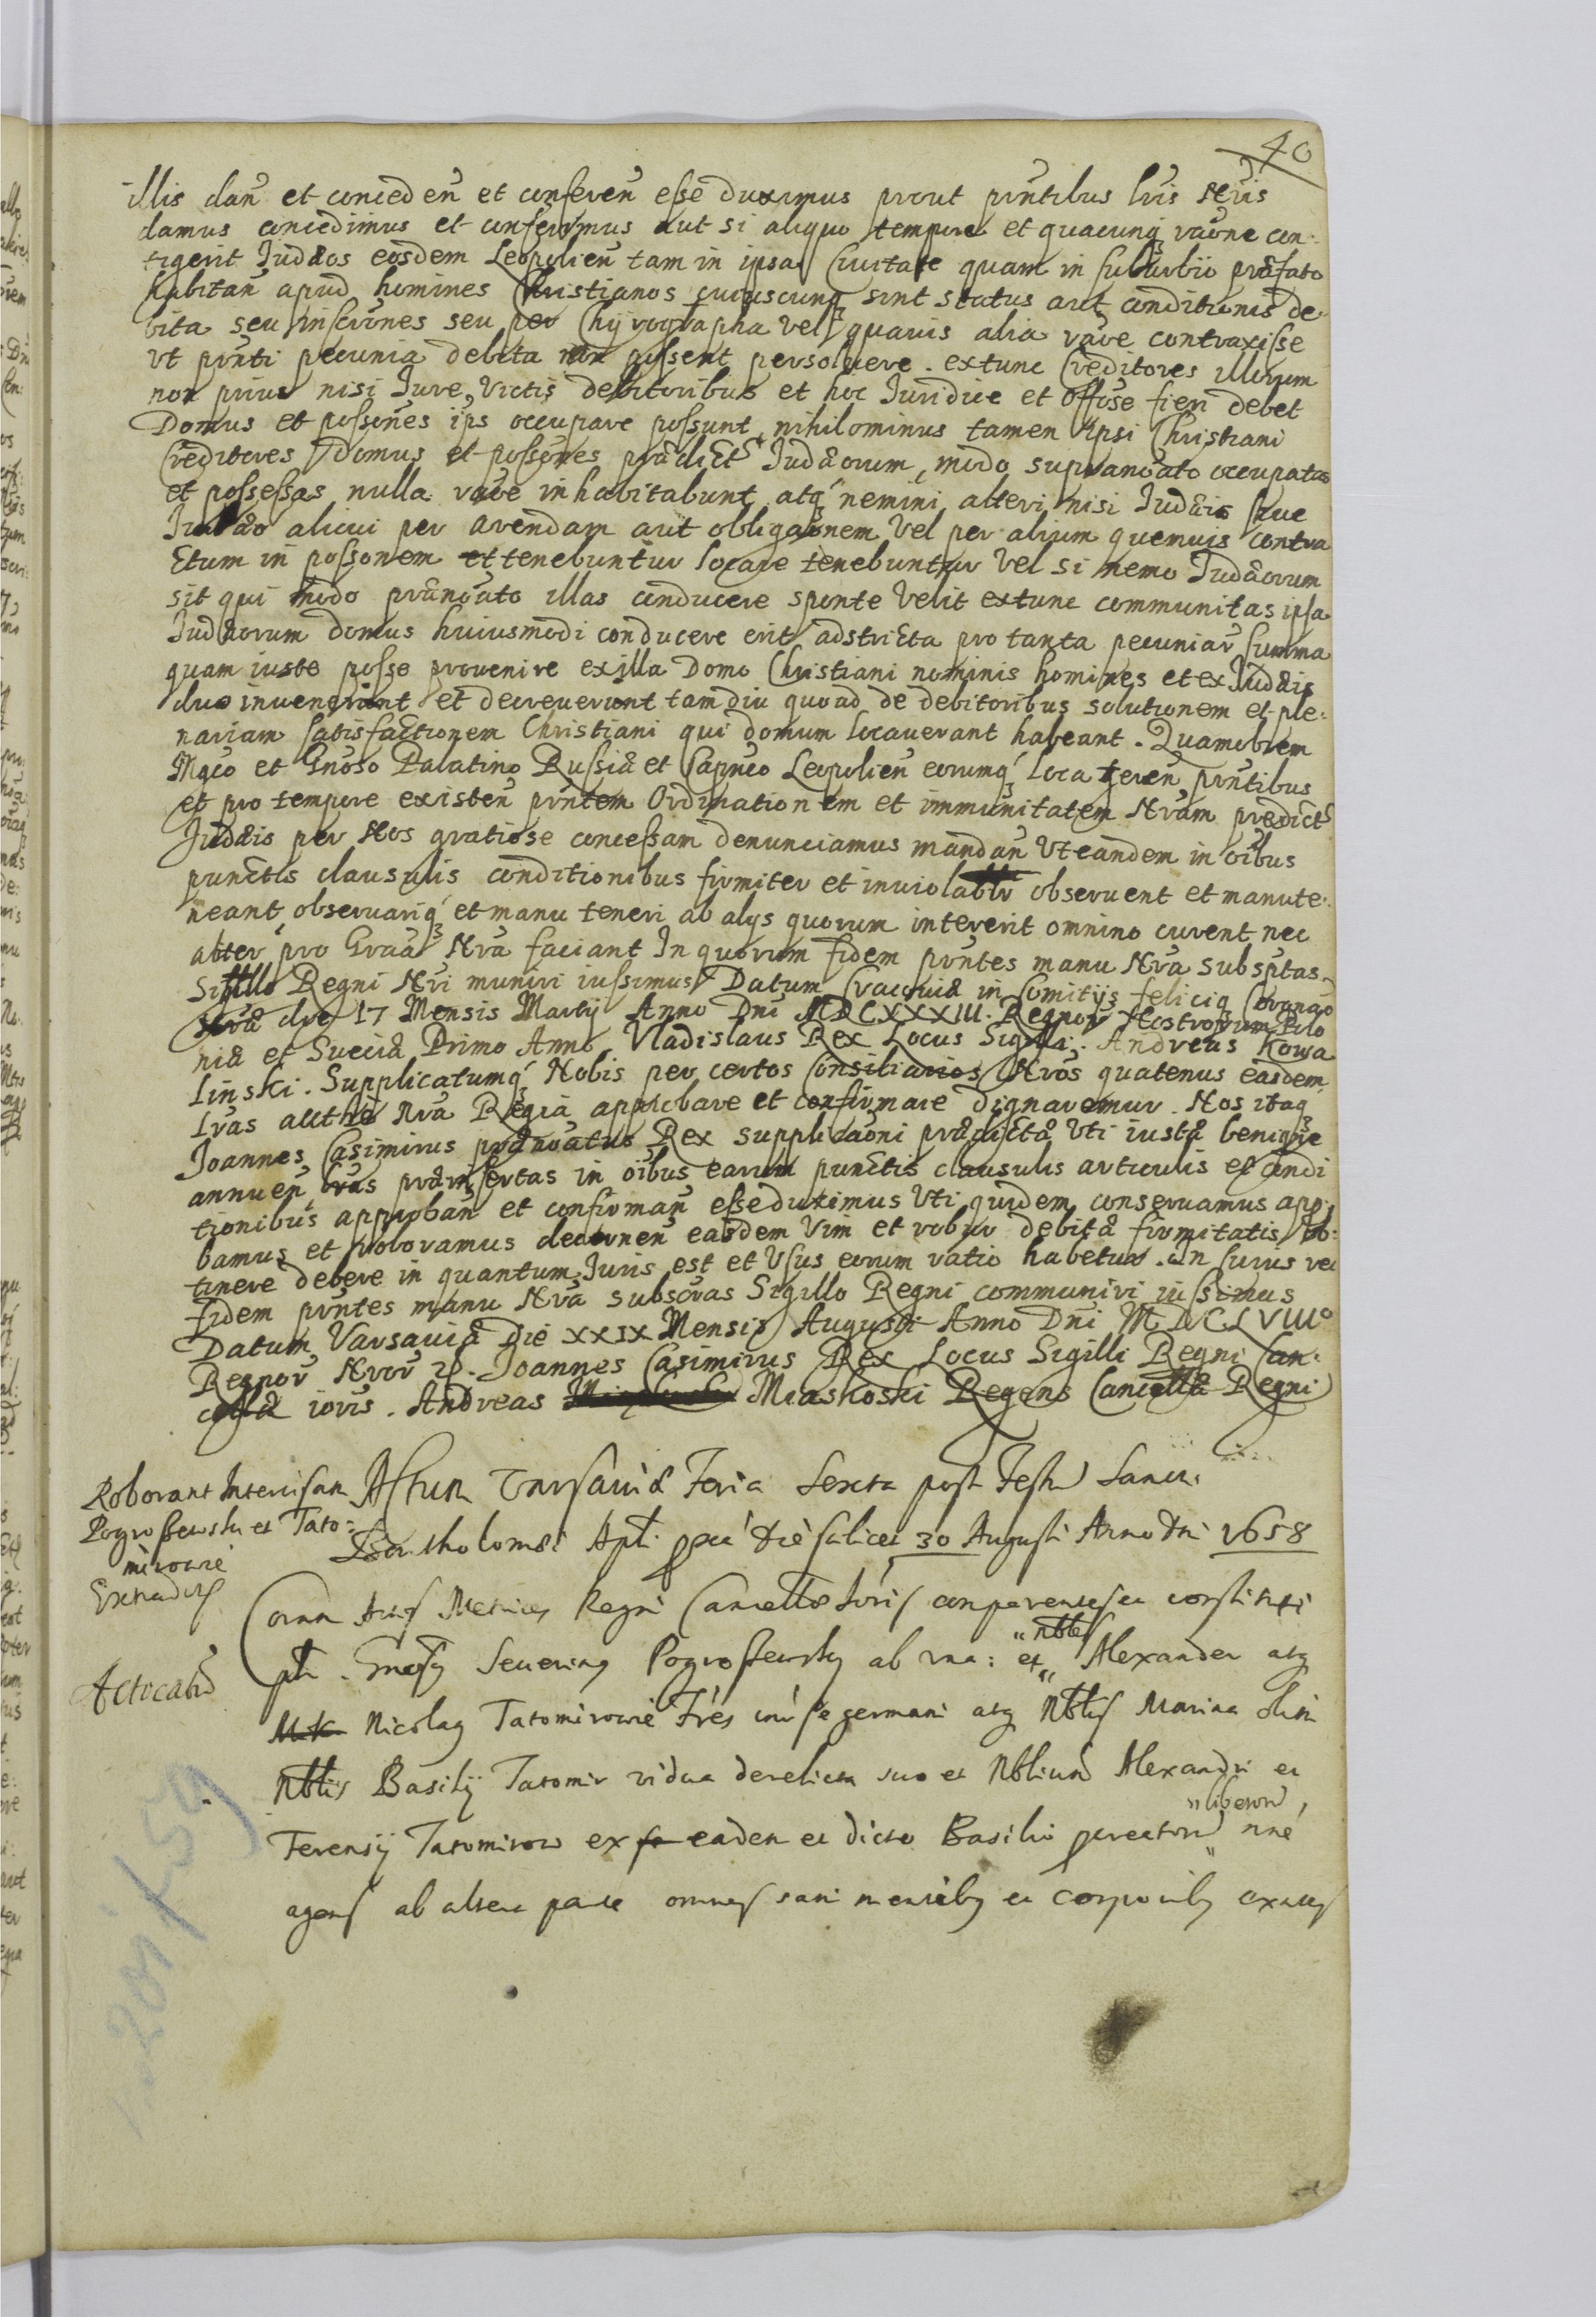 40
illis dan̄ et conceden̄ et conferen̄ esse duximus prout pn̄tibus lr̄is nr̄is
damus concedimus et conferimus aut si aliquo tempore et quacunq rāone con:
tigerit Judæos eosdem Leopolien̄ tam in ipsa Civitate quam in suburbio præfato
habitan̄ apud homines Christianos cuiuscunq sint status aut conditionis de
bita seu inscrip̄nes seu per Chyrographa vel quavis alia rāōe contraxisse
ut pn̄ti pecunia debita non possent persolvere. extunc Creditores illorum
non prius nisi Jure, victis debitoribus et hoc Juridice et offōse fieri debet
Domus et possōnes ips̄ occupare possunt, nihilominus tamen ipsi Christiani
Creditores domus et possōnes prædict Judæorum, modo suprano͞tato occupatas
et possessas nulla rāōe inhabitabunt, atq nemini alteri nisi Judæis sive
Judæo alicui per arendam aut obligāonem vel per alium quemvis contra
ctum in possōnem et tenebuntur locare tenebuntur vel si nemo Judæorum
sit qui modo præno͞tato illas conducere sponte velit extunc communitas ipsa
Judæorum domus huiusmodi conducere erit adstricta pro tanta pecuniar̄ summa
quam iuste posse provenire ex illa Domo Christiani nominis homines et ex Judæis
duo invenerint et decreverunt tam diu quoad de debitoribus solutionem et ple:
nariam satisfactionem Christiani qui domum locaverant habeant. Quamobrem
Mgco et Gnōso Palatino Russiæ et Capn̄eo Leopolien̄ eorumq loca teren̄, pn̄tibus
et pro tempore existen̄ pn̄tem Ordinationem et immunitatem Nr̄am prædict
Judæis per Nos gratiose concessam denunciamus mandan̄ ut eandem in oībus
punctis clausulis conditionibus firmiter et inviolablr̄ observent et manute:
neant, observariq et manu teneri ab alys quorum intererit omnino curent, nec
aliter pro Grāa Nr̄a faciant In quorum fidem pn̄tes manu Nr̄a subsptas
Sigillo Regni Nr̄i muniri iussimus Datum Cracoviæ in Comitijs felicis Coronāo
nis nr̄æ die 17 Mensis Martij Anno Dn̄i MDCXXXIII. Regnor̄ Nostrorum Polo
niæ et Sueciæ Primo Anno. Vladislaus Rex Locus Sigilli. Andreas Kowa
linski. Supplicatumq Nobis per certos Consiliarios Nr̄os quatenus easdem
lr̄as aucthe Nr̄a Regia approbare et confirmare dignaremur. Nos itaq
Joannes Casimirus præno͞tatus Rex supplicāoni prædictæ uti iustæ benigne
annuen̄, lr̄as præinsertas in oībus earum punctis clausulis articulis et condi
tionibus approban̄ et confirman̄ esse duximus uti quidem conservamus appro
bamus et roboramus decernen̄ easdem vim et robur debitæ firmitatis ob:
tinere debere in quantum Juris est et usus eorum ratio habetur. In cuius rei
fidem pn̄tes manu Nr̄a subscr̄as Sigillo Regni communiri iussimus
Datum Varsaviæ Die XXIX Mensis Augusti Anno Dn̄i MDCLVIIIo
Regnor̄ Nror̄ Joannes Casimirus Rex Locus Sigilli Regni Can:
cellæ ioris. Andreas Miaskoski Regens Cancellæ Regni
Roborant Intercisam
Pogroszewski et Tato:
mirowie
Extradit
Actum Varsaviæ Feria Sexta post Festum Sancti
Bartholomæi Apli. pxa die scilicet 30 Augusti Anno Dni 1658
Coram Actis Metrices Regni Cancellæ ioris comparentes et constituti
psl. Gnesg Severinus Pogroszewsky ab una: et „nbles Alexander atq
Nicolaus Tatomirowie Fres inter se germani atq Nblis Marina olim
Nblis Basilij Tatomir vidua derelicta suo et Nblium Alexandri et
Terensij Tatomirow ex eadem et dicto Basilio procreator „liberorū nne
agens ab altera parte omnes sani mentibus et corporibus existen